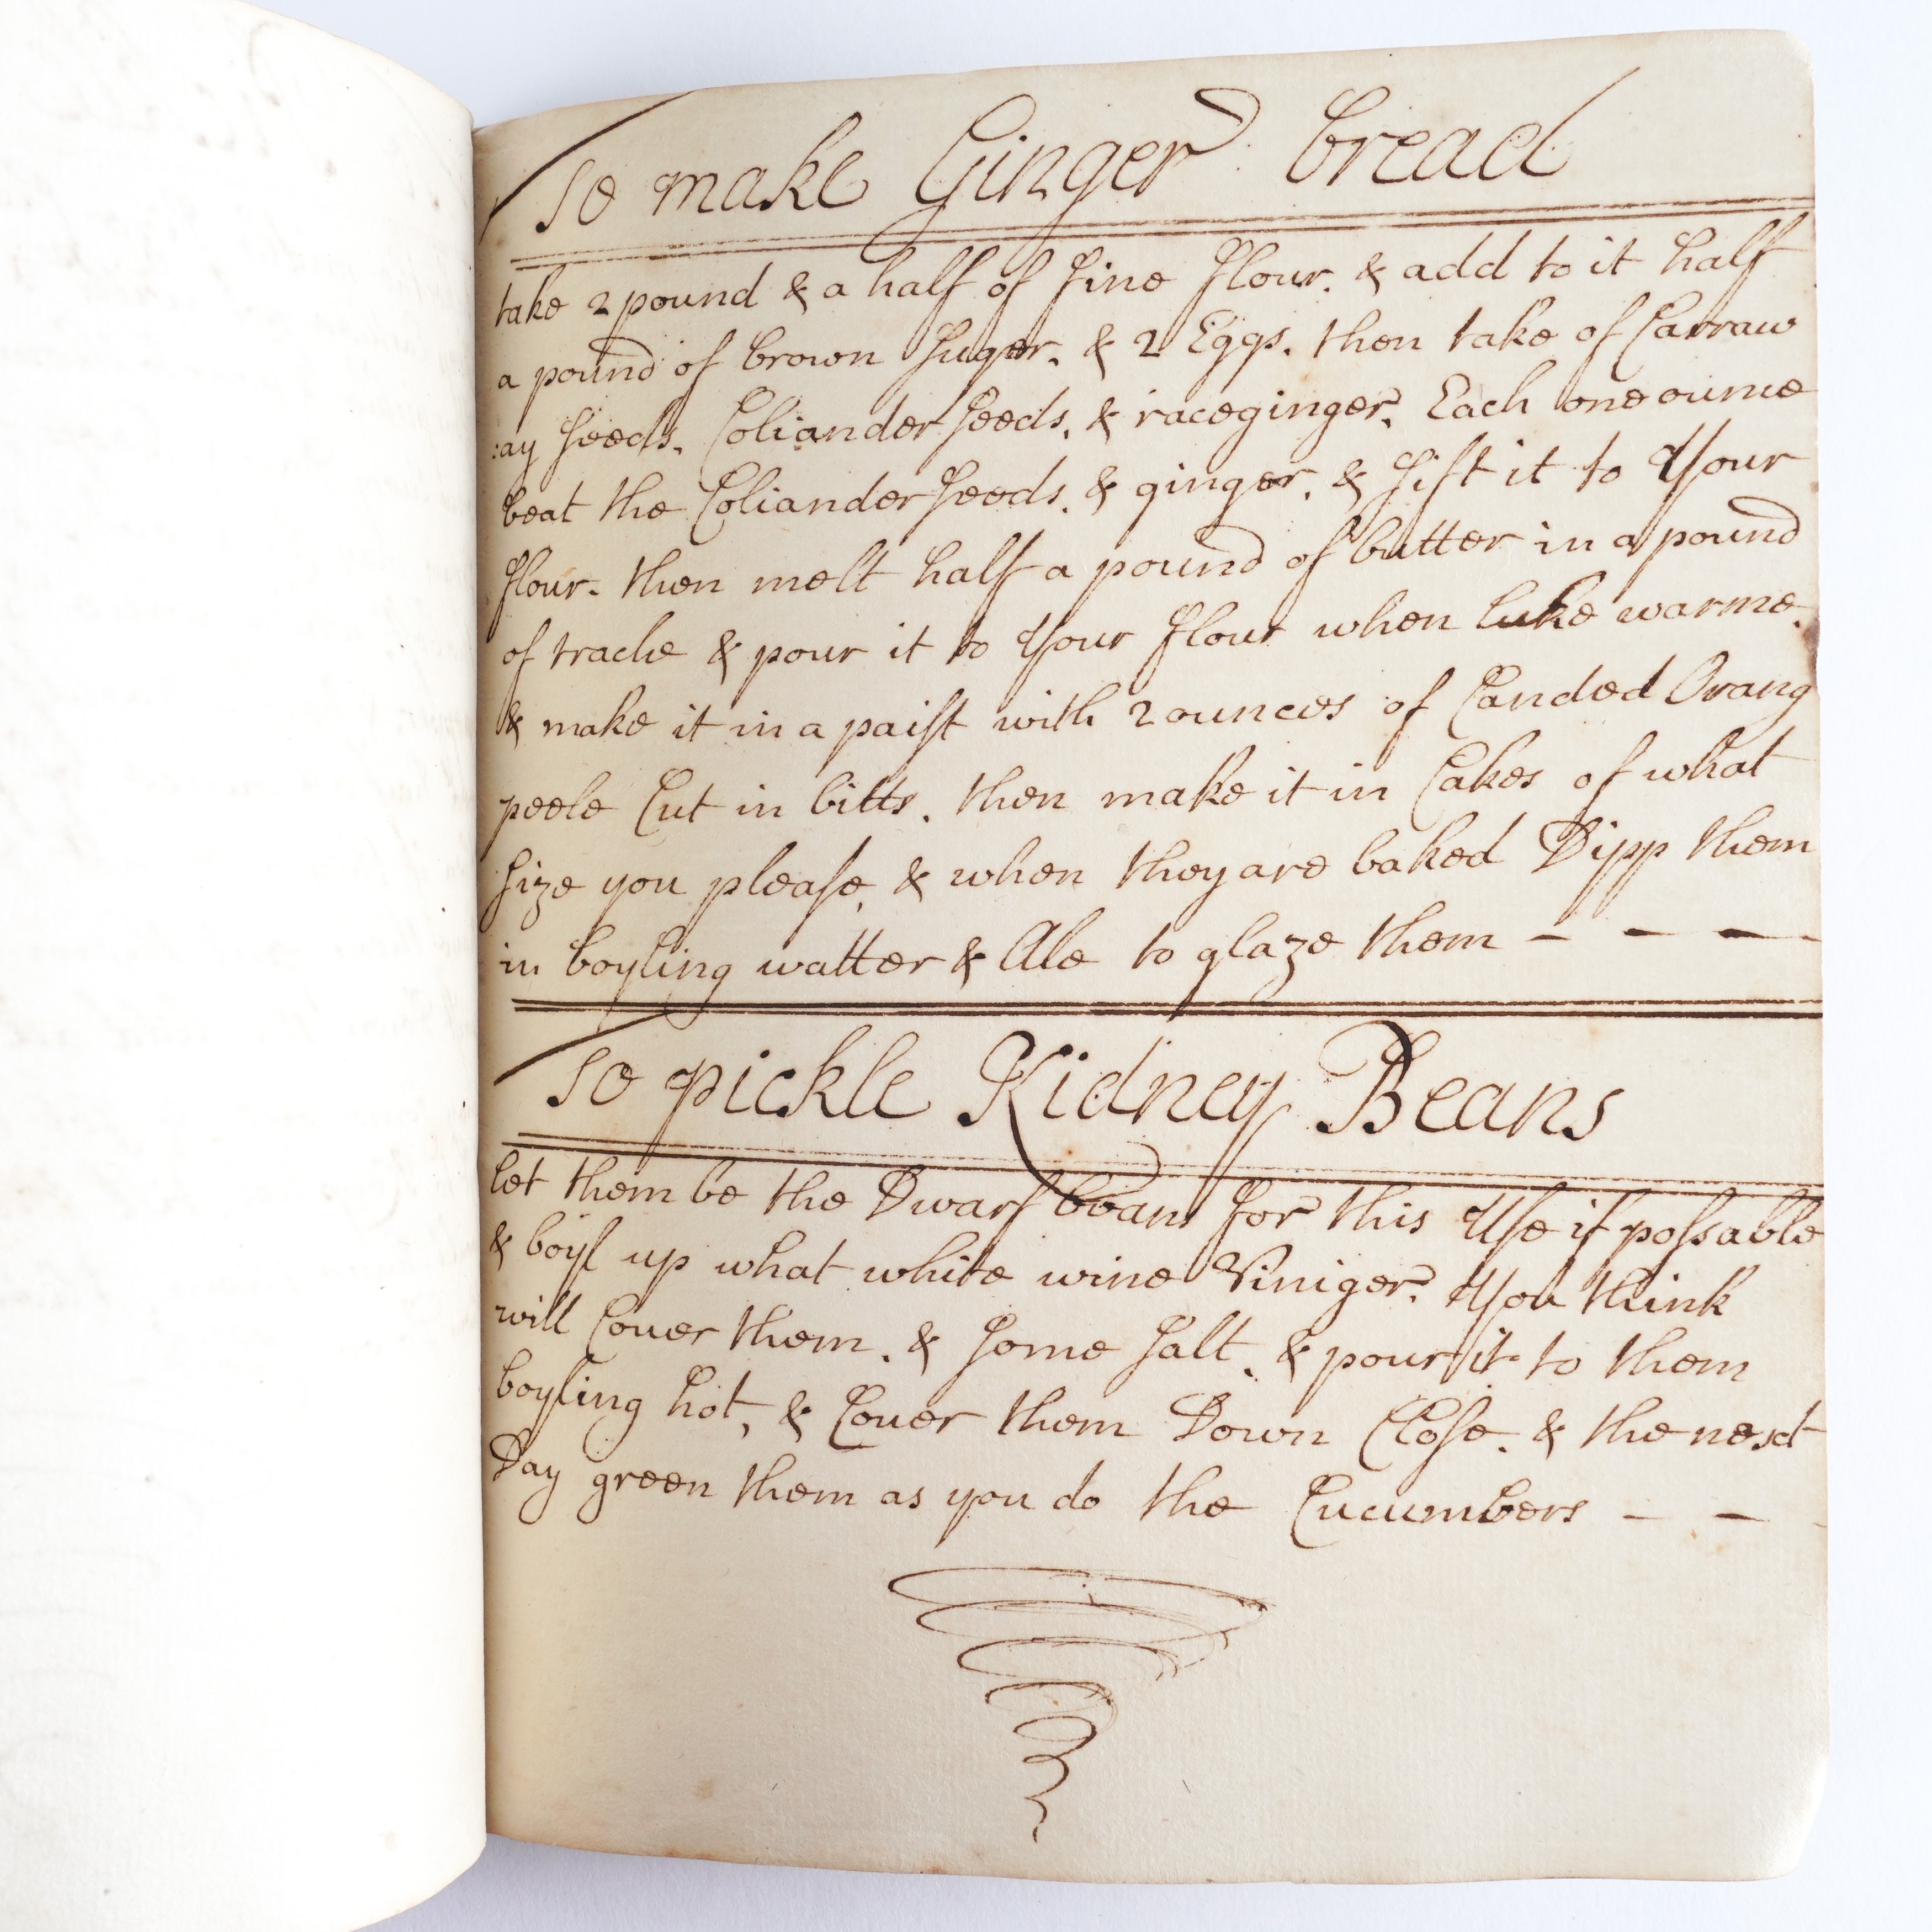 To make Ginger bread
take 2 pound & a half of fine flour. & add to it half
a pound of brown Suger. & 2 Eggs. then take of Carraw
:ay Seeds. Coliander Seeds. & raceginger. Each one ounce
beat the Coliander Seeds. & ginger. & Sift it to Your
flour. then melt half a pound of butter in a pound
of tracle & pour it to Your flour when luke warme.
& make it in a paist with 2 ounces of Canded Orang
peele Cut in bitts. then make it in Cakes of what
Size you please, & when they are baked Dipp them
in boyling watter & Ale to glaze them - - -
To pickle Kidney Beans
let them be the Dwarf beans for this Use if possable
& boyl up what white wine Viniger. You think
will Couer them. & Some Salt. & pour it to them
boyling hot, & Couer them Down Close. & the next
Day green them as you do the Cucumbers - - -